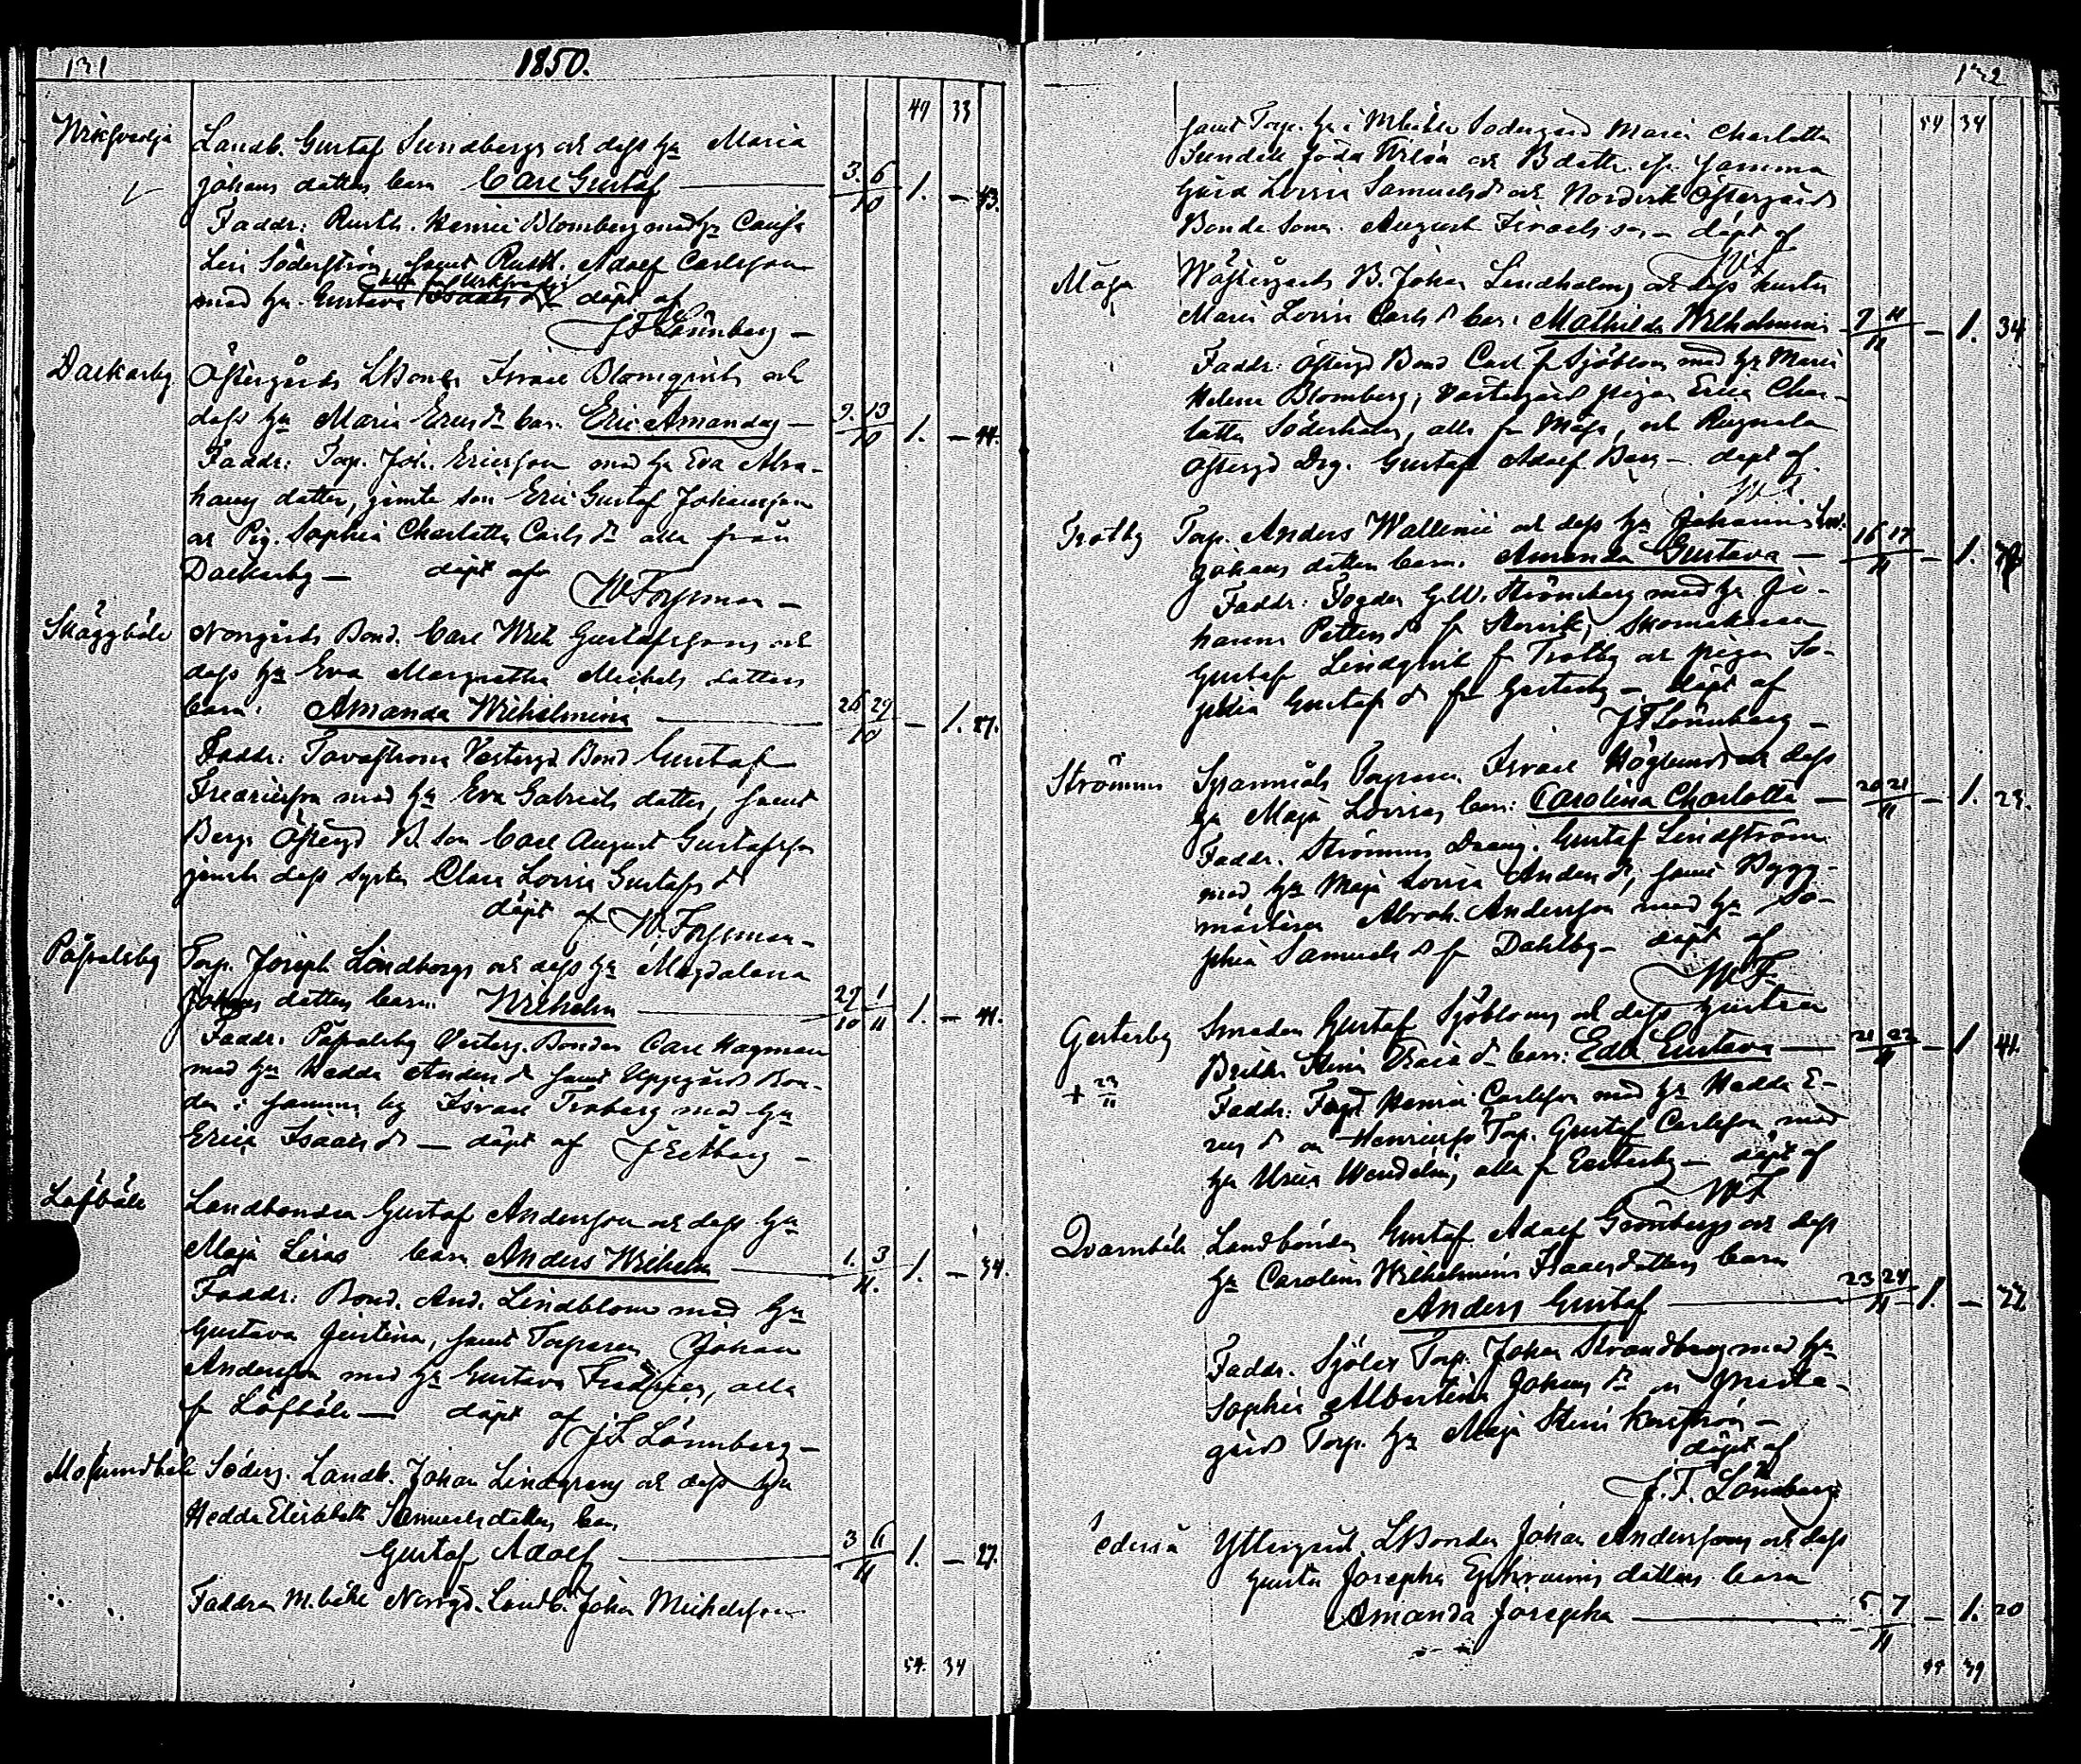 131
1850.
49 33
Landb. Gustaf Sundbergs och dess hu Maria
Johans dotters barn Carl Gustaf 3. 6 / 10 1. — 43.
Faddr: Rusth. Henric Blomberg med hu
Söderström samt Rusth. Adolf Carlsson
med hu Gustava döpt af
J F Lönnberg —
Dackarby Östergårds LBonde Israel Blomqvists och
dess hu Maria Ericsdr barn Eric Amandus — 9. 13 / 10 1. — 44.
Faddr: Torp. Joh. Ericsson med hu Eva Abra-
hams dotter, jemte son Eric Gustaf Johansson
och Pig. Sophia Charlotta Carlsdr alla från
Dackarby — döpt af
W Forsman —
Skäggböle Norrgårds Bond. Carl Wilh Gustafssons och
dess hu Eva Margretha Michels dotters
barn. Amanda Wilhelmina 26 29 / 10 — 1. 27.
Faddr: Vestergd Bond Gustaf
Fredricsson med hu Eva Gabriels dotter, samt
Bergs Östergd B. son Carl August Gustafsson
jemte dess syster Clara Lovisa Gustafs dr
döpt af W. Forsman —
Påvalsby Torp. Joseph Lindborgs och dess hu Magdalena
Johans dotters barn. Wilhelm 29 1 / 10 11 1. — 41.
Faddr. Påvalsby Vesterg. Bonden Carl Hagman
med hu Hedda Andersdr samt Uppgård Bon-
den i samma by Israel Troberg med hu
Erica Isaacsdr — döpt af J Ekberg —
Löfböle Landbonden Gustaf Andersson och dess hu
Maja Lisas barn Anders Wilhelm 1. 3 / 11. 1. — 34.
Faddr: Bond. And. Lindblom med hu
Gustava Justina, samt Torparen Johan
Andersson med hu Gustava, alla
fr Löfböle — döpt af
J F Lönnberg —
Söderg. Landb. Johan Lindgrens och dess hu
Hedda Elisabeth Samuelsdotters barn
Gustaf Adolf 3 6 / 11 1. — 27.
Faddra M.böle Norrgd. Landb. Johan Michelsson
54. 34
132
54 34
samt Torp. hu i Mböle Södergård Maria Charlotta
Sundell och B dottr. fr. samma
gård Lovisa Samuelsdr och Östergårds
Bonde Sonen August Israelsson — döpt af
Westergårds B. Johan Lindholms och dess hustru
Maria Lovisa Carlsdr barn Mathilda Wilhelmina 7 11 / 11 — 1. 34
Faddr: Östergd Bond Carl Fr Sjöblom med hu Maria
Helena Blomberg, Vestergård pigan Erica Char-
lotta Söderholm, alla fr, och
Östergd Drg. Gustaf Adolf Berg — döpt af
W F.
Trotby Torp. Anders Wallenii och dess hu Johanna
Johans dotters barn. Amanda Gustava — 16 17 / 11 — 1.
Faddr: Fogden G.W. Strömberg med hu Jo-
hanna Petters dr fr, Skomakaren
Gustaf Lindqvist fr Trotby och pigan So-
phia Gustafs dr fr Gesterby — döpt af
J F Lönnberg —
Strömma Torparen Israel Höglunds och dess
hu Maja Lovisas barn: Carolina Charlotta — 20 21 / 11 — 1. 23.
Faddr. Strömma Dräng. Gustaf Lindström
med hu Maja Lovisa Andersdr, samt Bygg-
mästaren Abrah. Andersson med hu So-
phia Samuelsdr fr Dahlby — döpt af
W F.
Gesterby Smeden Gustaf Sjöbloms och dess hustru
+ 23 / 11 Stina barn: Edla Gustava — 21 22 / 11 — 1 41.
Faddr: Henric Carlsson med hu Hedda E-
rics dr Torp. Gustaf Carlsson, med
hu, alla fr Gesterby — döpt af
W F
Qvarnböle Landbonden Gustaf Adolf Grönbergs och dess
hu Carolina Wilhelmina Isaacsdotters barn
Anders Gustaf 23 24 / 11 — 1. — 22
Faddr. Sjölax Torp. Johan Strandberg med hu
Sophia Albertina Johansdr och
gårds Torp. hu Maja Stina
döpt af
J. F. Lönnberg
Yttergård LBonden Johan Anderssons och dess
hustru Josepha Ephraims dotters barn
Amanda Josepha 5. 7 / 11 — 1. 20
39